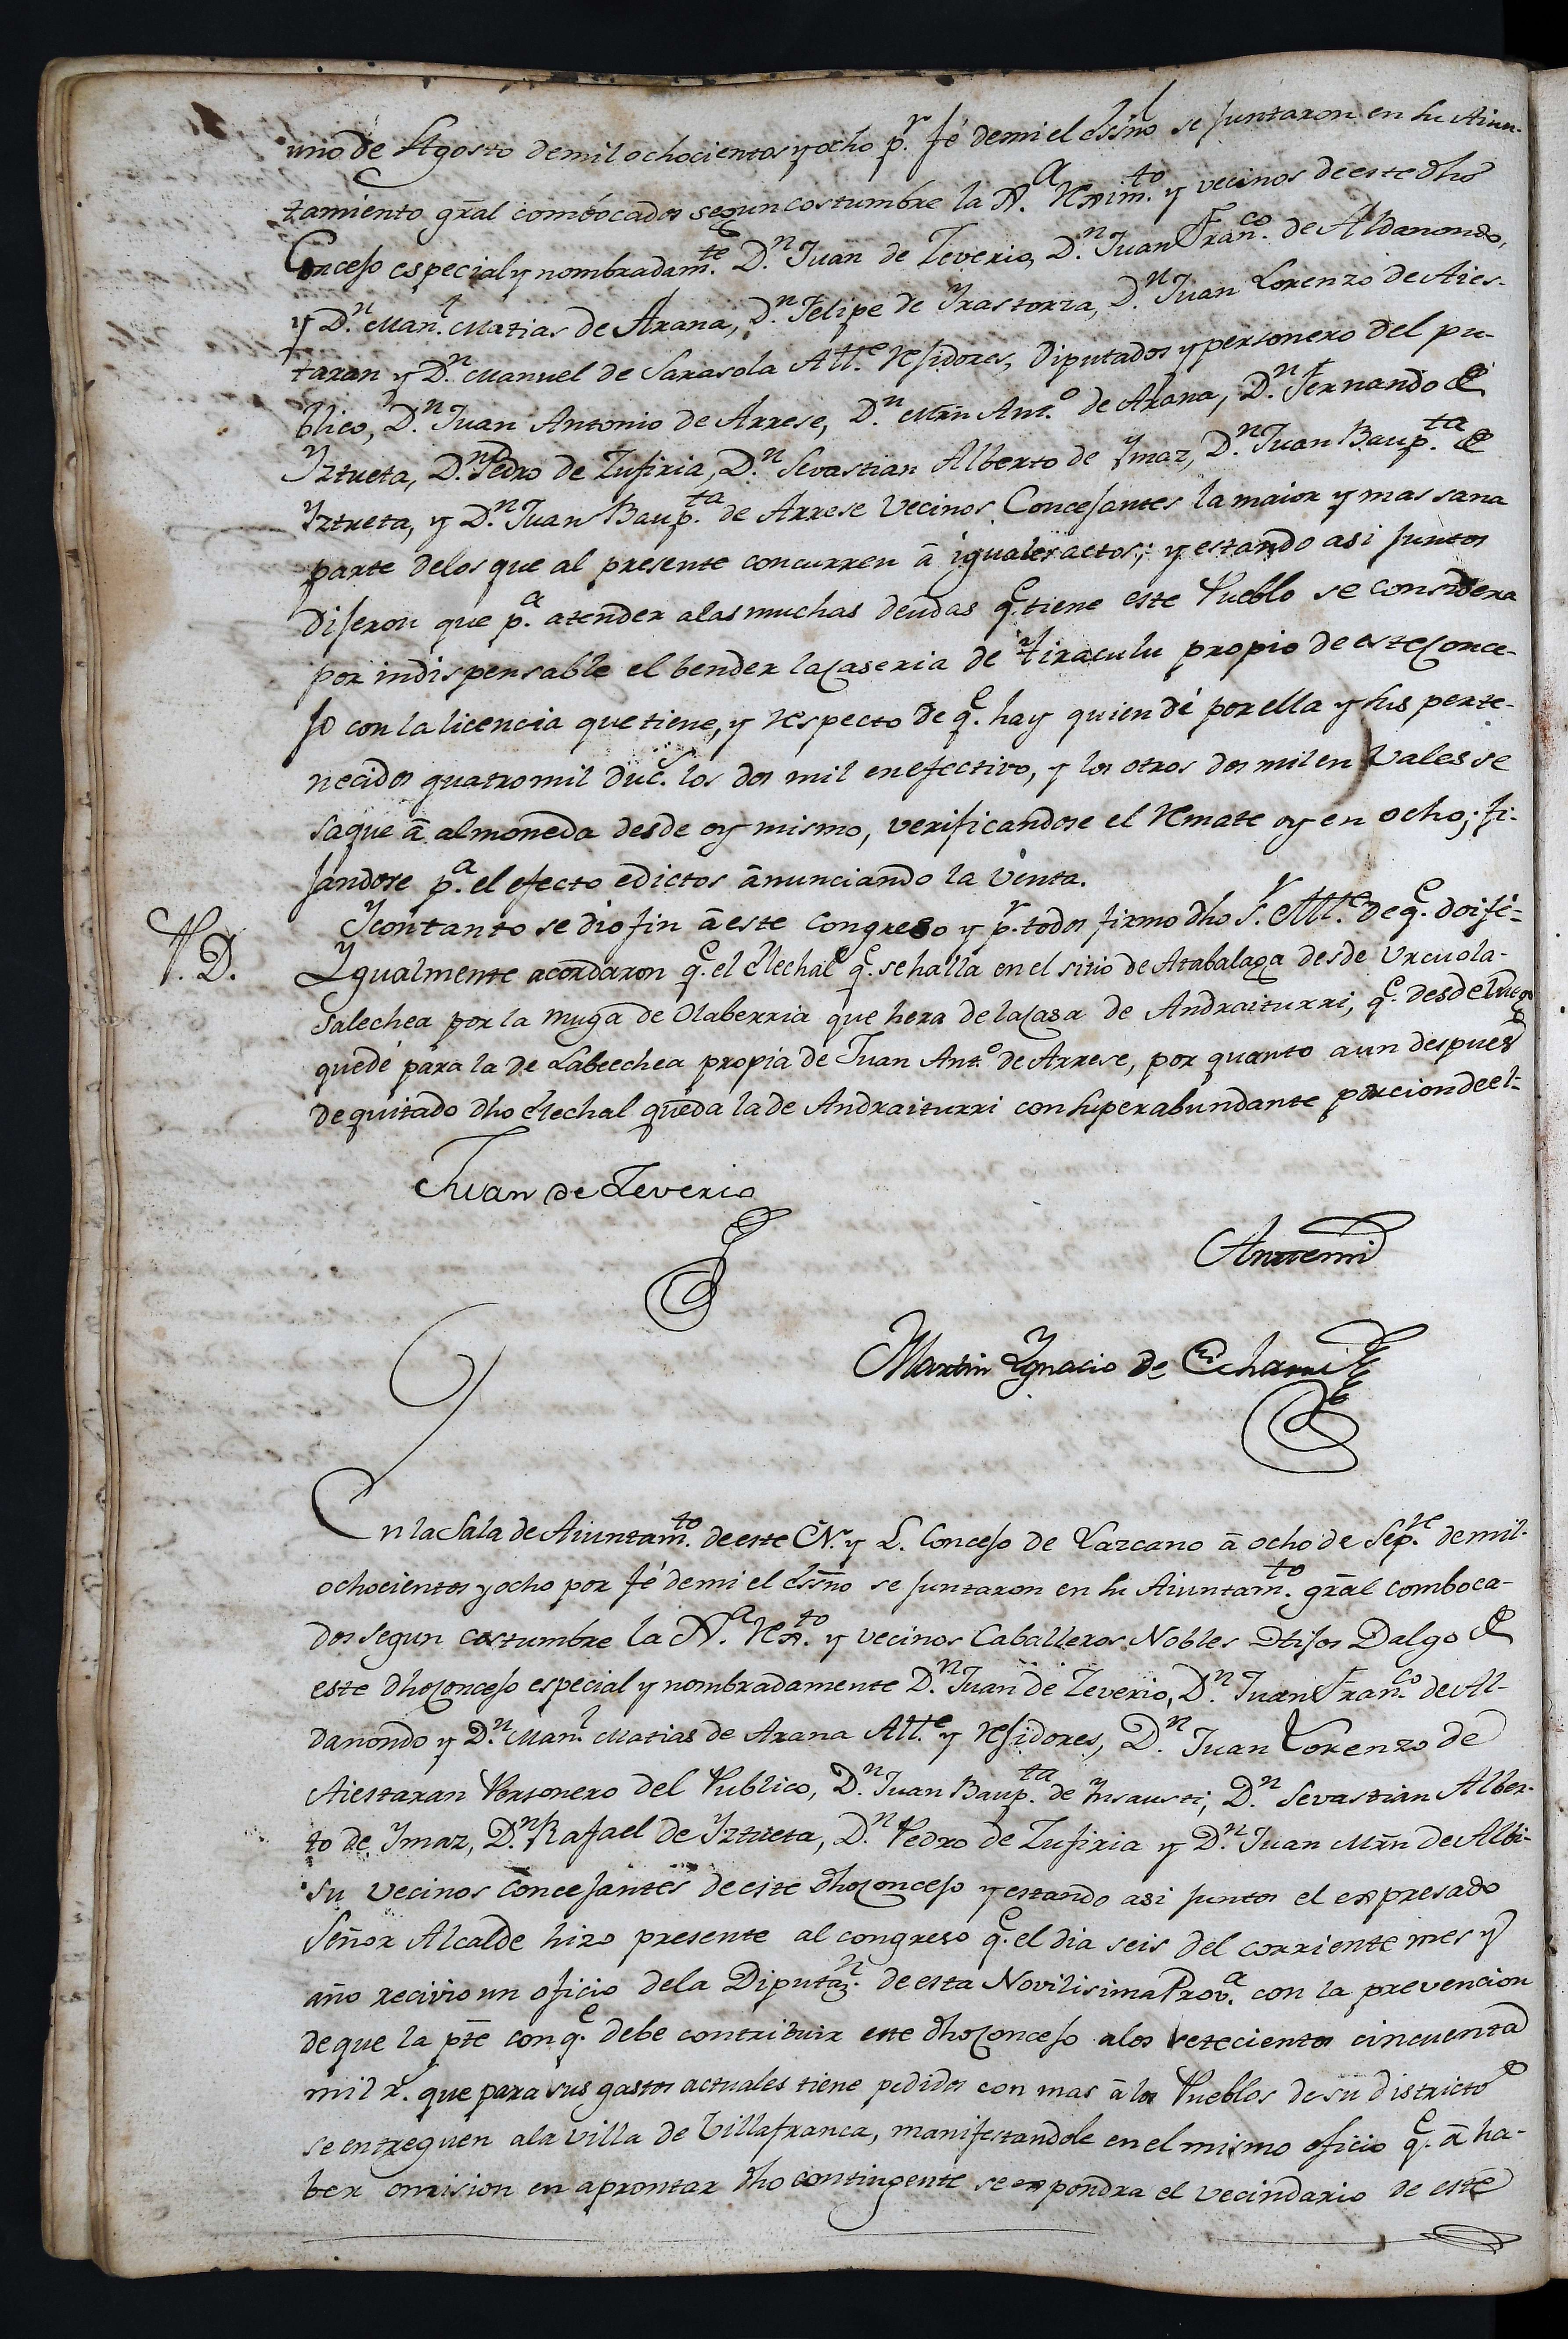 uno de Agosto demil ochocientos y ocho p.r fé demi el Ess.no se juntaron en su Aiun-
tamiento gral combocados segun costumbre la N.a Rexim.to y vecinos de este dho
Concejo especial y nombradam.te D.n Juan de Zeverio, D.n Juan Fran.co de Aldanondo,
y D.n Man.l Matias de Arana, D.n Felipe de Yrastorza, D.n Juan Lorenzo de Aies-
taran y D.n Manuel de Sarasola Alt.e Rejidores, Diputados y personero del pu-
blico, D.n Juan Antonio de Arrese, D.n Mrn Ant.o de Arana, D.n Fernando de
Yztueta, D.n Pedro de Zufiria, D.n Sevastian Alberto de Ymaz, D.n Juan Baup.ta de
Yztueta, y D.n Juan Baup.ta de Arrese Vecinos Concejantes la maior y mas sana
parte delos que al presente concurren á iguales actos; y estando asi juntos
dijeron que p.a atender alas muchas deudas q.e tiene este Pueblo se considera
por indispensable el bender la Caseria de Tiraculu propio de este Conce-
jo con la licencia que tiene, y respecto de q.e hay quien dé por ella y sus perte-
necidos quatro mil duc.s los dos mil en efectivo, y los otros dos mil en Vales se
saque á almoneda desde oy mismo, verificandose el Remate oy en ocho; fi-
jandose p.a el efecto edictos ánunciando la Venta.
Y contanto se dio fin á este Congreso y p.r todos firmo dho S.r Alt.e de q.e doi fé=
P.D. Ygualmente acordaron q.e el elechal q.e se halla en el sitio de Atabalaga desde Urcuola-
salechea por la muga de Olaberria que hera de la Casa de Andraiturri, q.e desde luego
quede para la de Labeechea propia de Juan Ant.o de Arrese, por quanto aun despues
de quitado dho elechal queda la de Andraiturri con superabundante porcion de el=
Juan de Zeverio
Antemi
Martin Ygnacio de
En la Sala de Aiuntam.to de este N. y L. Concejo de Lazcano á ocho de Sep.re de mil-
ochocientos y ocho por fé demi el Essno se juntaron en su Aiuntam.to gral comboca-
dos segun costumbre la N.a Rex.to y vecinos Caballeros Nobles Hijos Dalgo de
este dho Concejo especial y nombradamente D.n Juan de Zeverio, D.n Juan Fran.co de Al-
danondo y D.n Man.l Matias de Arana Alt.e y Rejidores, D.n Juan Lorenzo de
Aiestaran Personero del Publico, D.n Juan Baup.ta de Ynsausti, D.n Sevastian Alber-
to de Ymaz, D.n Rafael de Yztueta, D.n Pedro de Zufiria y D.n Juan Mrn de Albi-
su Vecinos Concejantes de este dho Concejo y estando asi juntos el expresado
Señor Alcalde hizo presente al congreso q.e el dia seis del corriente mes y
año recivio un oficio dela Diputaz.n de esta Novilisima Prov.a con la prevencion
de que la pte con q.e debe contribuir este dho Concejo alos setecientos cincuenta
mil r.s que para sus gastos actuales tiene pedidos con mas á los Pueblos de su districto
se entreguen ala Villa de Villafranca, manifestandole en el mismo oficio q.e á ha-
ber omision en aprontar dho contingente se expondra el vecindario de este